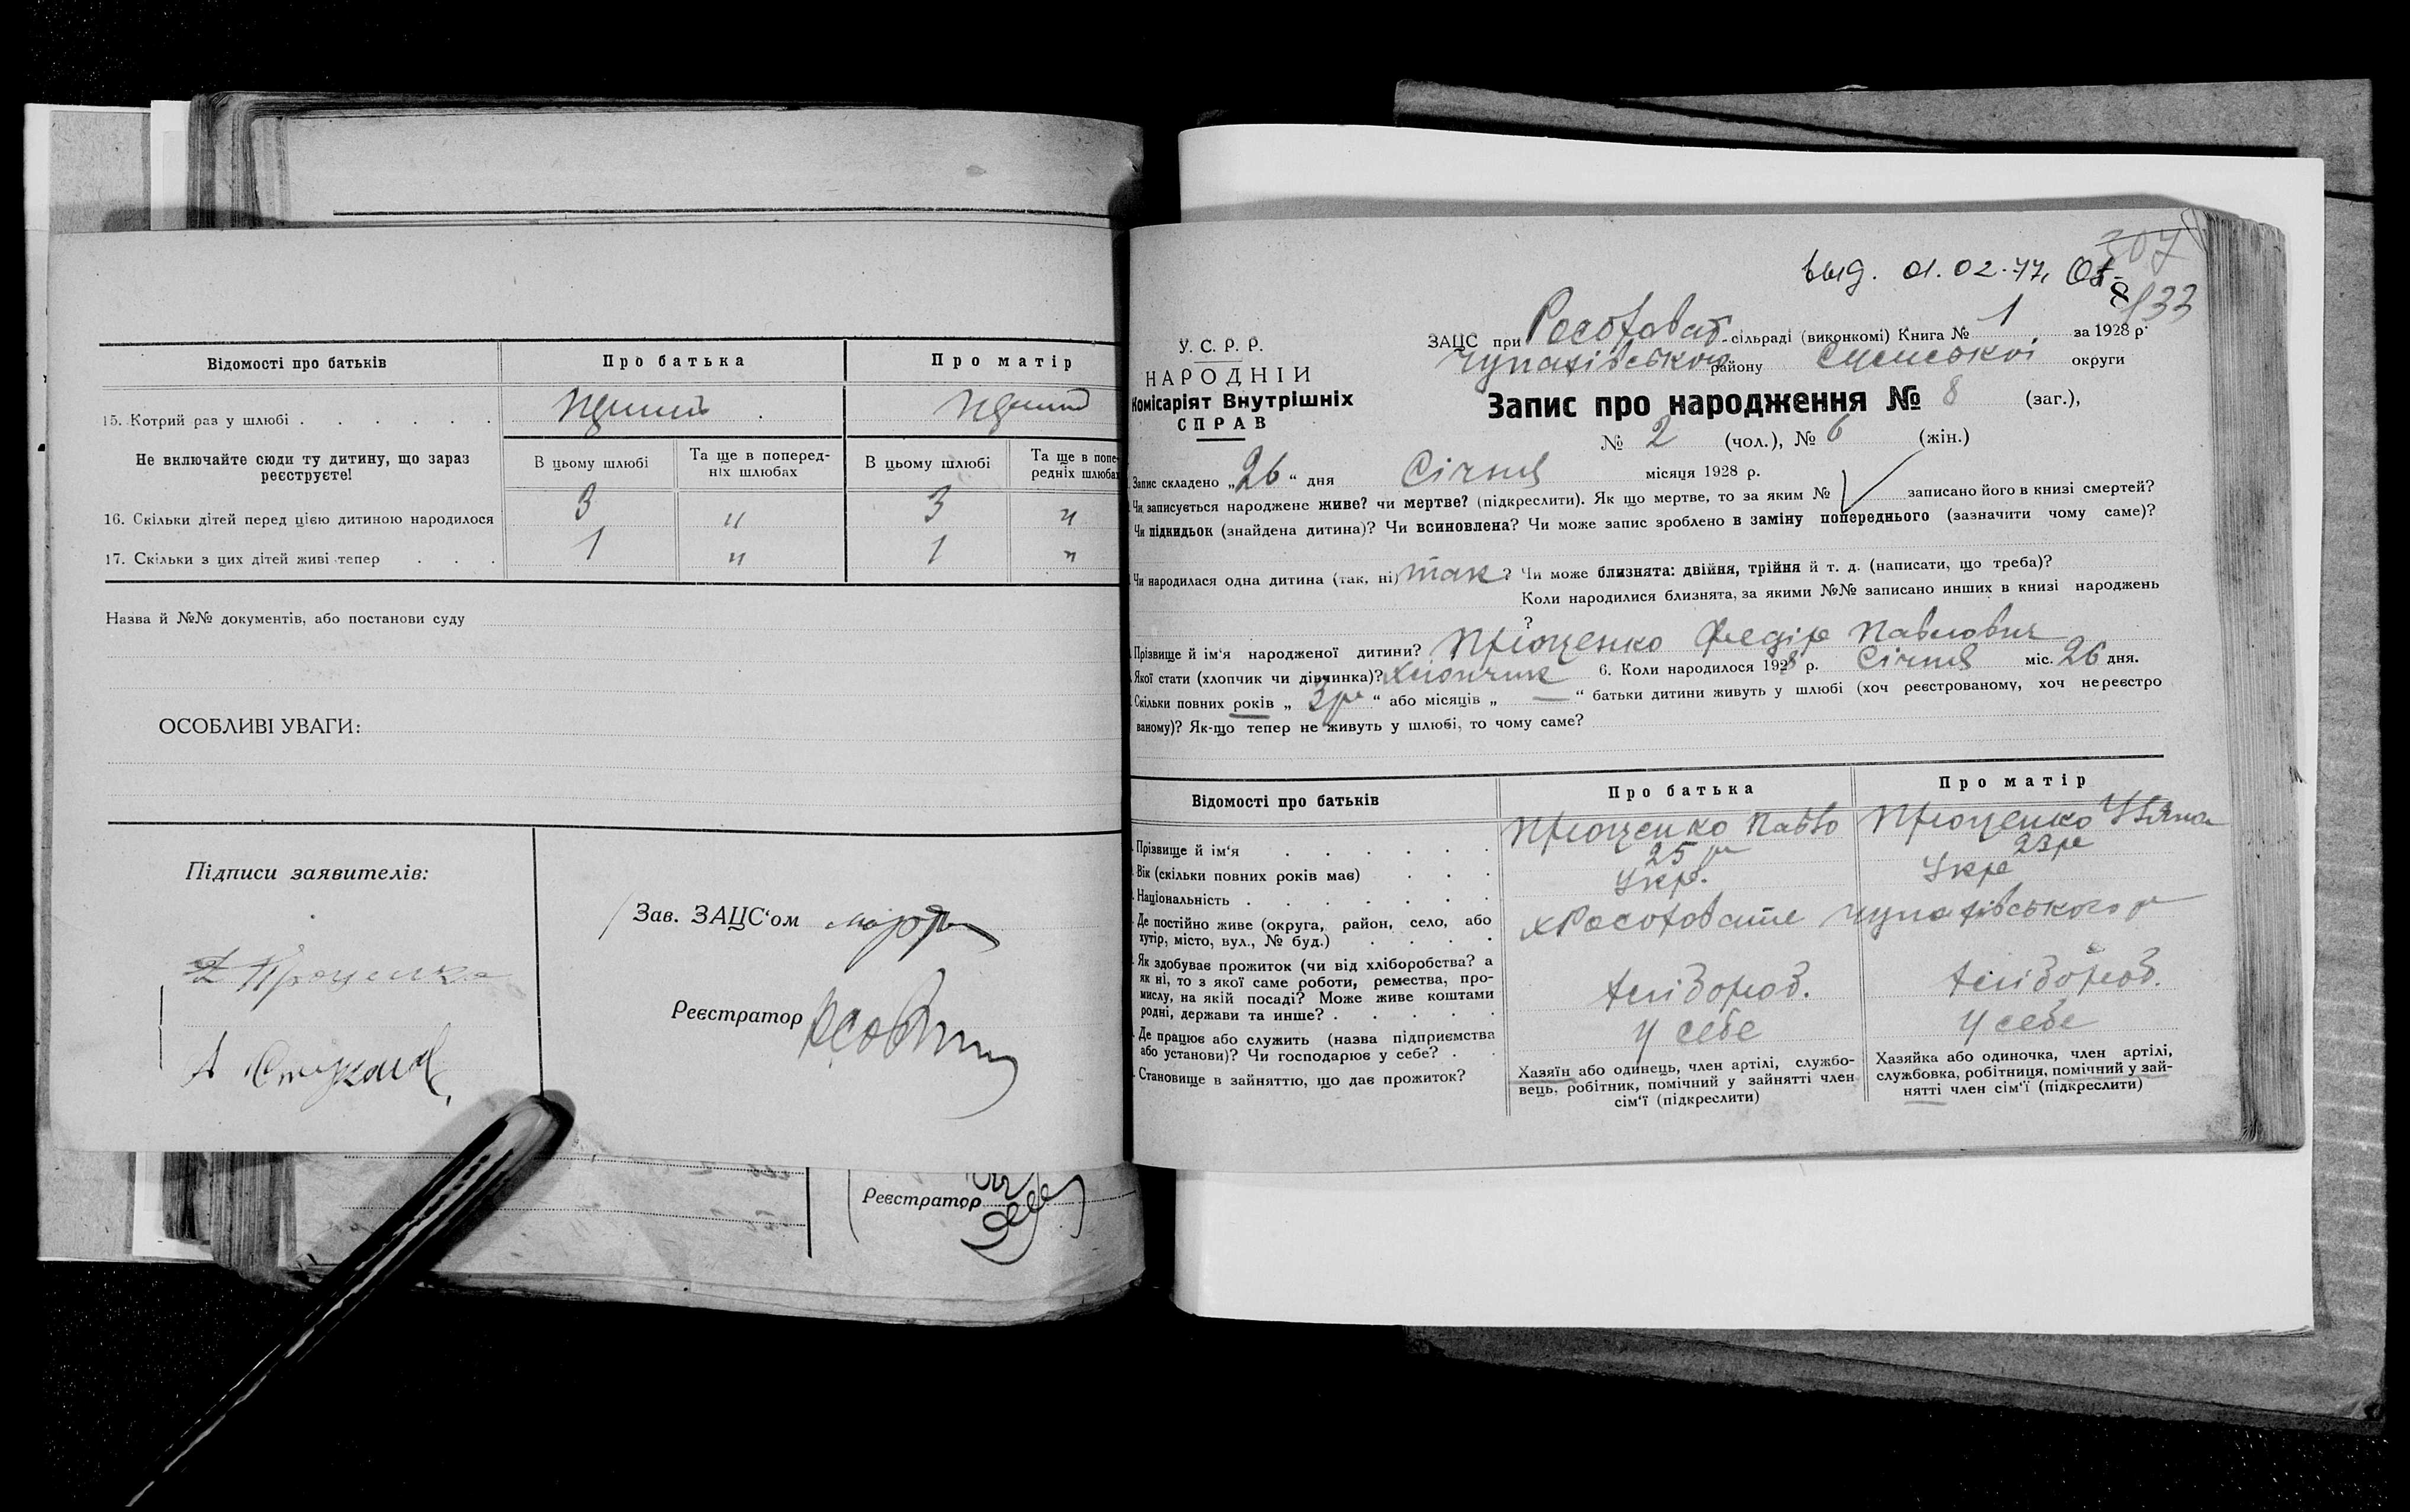 Відомості про батьків
Про батька
Про матір
15. Котрий раз у шлюбі
Не включайте сюди ту дитину, що зараз
реєструєте!
В цьому шлюбі
Та ще в поперед-
ніх шлюбах
В цьому шлюбі
Та ще в попе-
редніх шлюбах
16. Скільки дітей перед цією дитиною народилося 3 " 3 "
17. Скільки з цих дітей живі тепер 1 " 1 "
Назва й №№ документів, або постанови суду
ОСОБЛИВІ УВАГИ:
Підписи заявителів:
Проценко
Зав. ЗАЦС'ом
Реєстратор
Реєстратор
выд. 01.02.77
307
8
133
У. С. Р. Р.
НАРОДНІЙ
Комісаріят Внутрішніх
СПРАВ
ЗАЦС при Росоховат. сільраді (виконкомі) Книга № 1 за 1928 р.
Чупахівського району Сумської округи
Запис про народження № 8 (заг.),
№ 2 (чол.), № 6 (жін.)
Запис складено „26“ дня Січня місяця 1928 р.
Чи записується народжене живе? чи мертве? (підкреслити). Як що мертве, то за яким № записано його в книзі смертей?
Чи підкидьок (знайдена дитина)? Чи всиновлена? Чи може запис зроблено в заміну попереднього (зазначити чому саме)?
Чи народилася одна дитина (так, ні) так? Чи може близнята: двійня, трійня й т. д. (написати, що треба)?
Коли народилися близнята, за якими №№ записано инших в книзі народжень
?
Прізвище й ім'я народженої дитини? Проценко Федір Павлович
Якої стати (хлопчик чи дівчинка)? Хлопчик 6. Коли народилося 1928 р. Січня міс. 26 дня.
Скільки повних років „ 3р “ або місяців „ — “ батьки дитини живуть у шлюбі (хоч реєстрованому, хоч нереєстро
ваному)? Як-що тепер не живуть у шлюбі, то чому саме?
Відомості про батьків
Про батька
Про матір
Прізвище й ім'я Проценко Павло Проценко Уляна
Вік (скільки повних років має) 25 р 23р
Національність Укр. Укр
Де постійно живе (округа, район, село, або
хутір, місто, вул., № буд.) х Росоховате Чупахівського р
Як здобуває прожиток (чи від хліборобства? а
як ні, то з якої саме роботи, ремества, про-
мислу, на якій посаді? Може живе коштами
родні, держави та инше? хлібороб. хлібороб.
Де працює або служить (назва підприємства
або установи)? Чи господарює у себе? у себе у себе
Становище в зайняттю, що дає прожиток?
Хазяїн або одинець, член артілі, службо-
вець, робітник, помічний у зайнятті член
сім'ї (підкреслити)
Хазяйка або одиночка, член артілі,
службовка, робітниця, помічний у зай-
нятті член сім'ї (підкреслити)